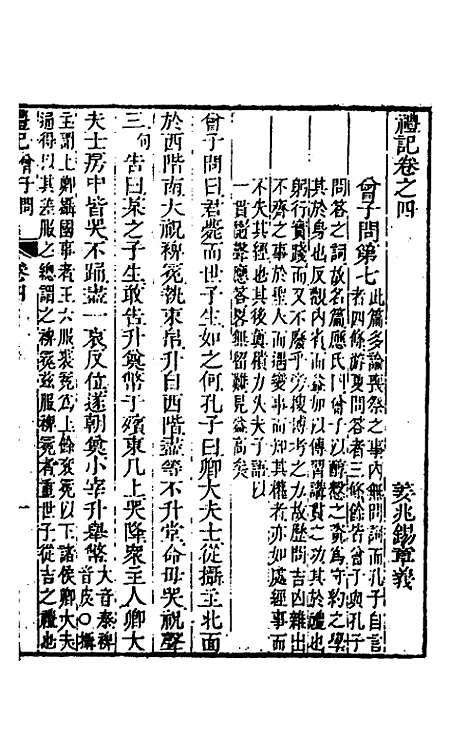 禮記卷之四
姜兆錫章義
曾子問第七
此篇多論喪祭之事內無問詞而孔子自言
者四條游夏問答者三條餘皆曾子與孔子
問答之詞故名篇應氏曰曾子以醇慤之資爲守約之學
其於身也反觀內省而益加以傳習講貫之功其於禮也
躬行實踐而又不廢乎旁搜博考之力故歷問吉凶雜出
不齊之事於聖人而遇變事而知其權者亦如處經事而
不失其經也其後真積力久夫子語以
一貫隨聲應答畧無留難見益高矣
曾子問曰君薨而世子生如之何孔子曰卿大夫士從攝主北面
於西階南大祝裨冕執束帛升自西階盡等不升堂命毋哭祝聲
三句告曰某之子生敢告升奠幣于殯東几上哭降衆主人卿大
夫士房中皆哭不踊盡一哀反位遂朝奠小宰升舉幣大音泰裨
音皮○攝
主謂上卿攝國事者王六服裘冕爲上餘冕以下諸侯卿大夫
通得以其差服之總謂之裨冕茲服裨冕者重世子從吉之禮也
禮記 曾子問
卷四
一